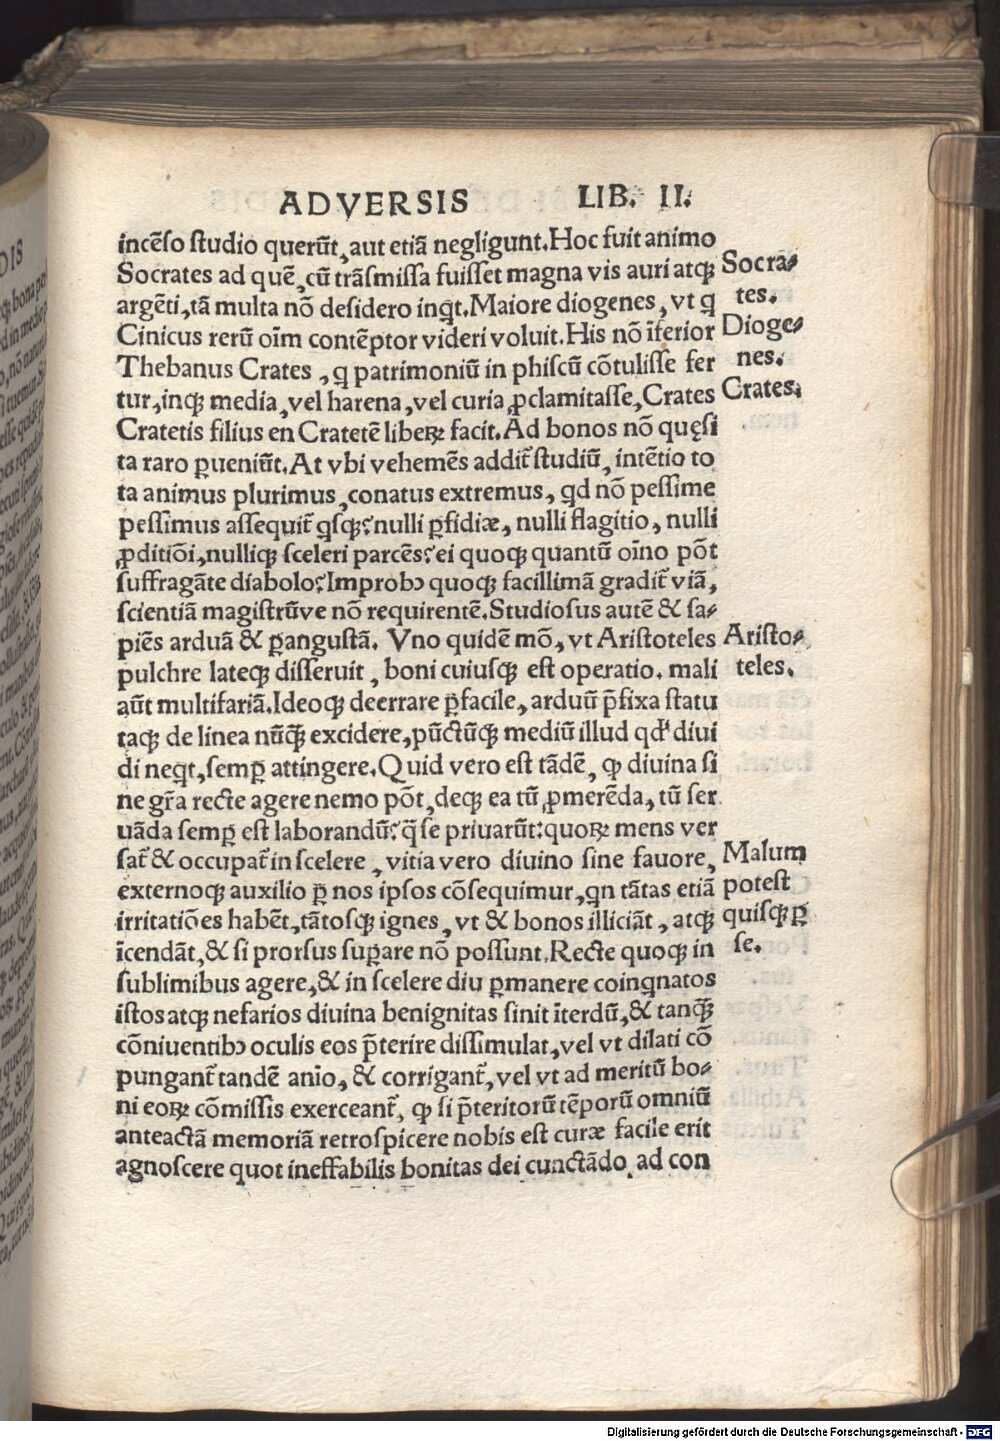 ADVERSIS LIB. II.
incēso ſtudio querūt, aut etiā negligunt. Hoc fuit animo
Socrates ad quē, cū trāſmiſſa fuiſſet magna vis auri atqꝫ
argēti, tā multa nō deſidero inqt. Maiore diogenes, vt q
Cinicus rerū oīm contēptor videri voluit. His nō īferior
Thebanus Crates, q patrimoniū in phiſcū cōtuliſſe fer
tur, inqꝫ media, vel harena, vel curia ꝓclamitaſſe, Crates
Cratetis filius en Cratetē liberꝝ facit. Ad bonos nō quęſi
ta raro ꝑueniūt. At vbi vehemēs addit̄ ſtudiū, intētio to
ta animus plurimus, conatus extremus, qd nō peſſime
peſſimus aſſequit̄ qſqꝫ? nulli ꝑfidiæ, nulli flagitio, nulli
ꝓditiōi, nulliqꝫ ſceleri parcēs? ei quoqꝫ quantū oīno pōt
ſuffragāte diabolo? Improbꝰ quoqꝫ facillimā gradit̄ viā,
ſcientiā magiſtrūve nō requirentē. Studioſus autē & ſa-
piēs arduā & ꝑanguſtā. Vno quidē mō, vt Ariſtoteles
pulchre lateqꝫ diſſeruit, boni cuiuſqꝫ eſt operatio. mali
aūt multifariā. Ideoqꝫ deerrare ꝑfacile, arduū p̄fixa ſtatu
taqꝫ de linea nūqꝫ̄ excidere, pūctūqꝫ mediū illud qd' diui
di neqt, ſemꝑ attingere. Quid vero eſt tādē, ꝙ diuina ſi
ne gr̄a recte agere nemo pōt, deqꝫ ea tū ꝓmerēda, tū ſer
uāda ſemꝑ eſt laborandū? q̄ ſe priuarūt: quoꝝ mens ver
ſat̄ & occupat̄ in ſcelere, vitia vero diuino ſine fauore,
externoqꝫ auxilio ꝑ nos ipſos cōſequimur, qn tātas etiā
irritatiōes habēt, tātoſqꝫ ignes, vt & bonos illiciāt, atqꝫ
īcendāt, & ſi prorſus ſuꝑare nō poſſunt. Recte quoqꝫ in
ſublimibus agere, & in ſcelere diu ꝑmanere coinqnatos
iſtos atqꝫ nefarios diuina benignitas ſinit īterdū, & tanqꝫ̄
cōniuentibꝰ oculis eos p̄terire diſſimulat, vel vt dilati cō
pungant̄ tandē anīo, & corrigant̄, vel vt ad meritū bo-
ni eoꝝ cōmiſſis exerceant̄, ꝙ ſi p̄teritorū tēporū omniū
anteactā memoriā retroſpicere nobis eſt curæ facile erit
agnoſcere quot ineffabilis bonitas dei cunctādo, ad con
Socra-
tes.
Dioge-
nes.
Crates.
Ariſto-
teles.
Malum
poteſt
quiſqꝫ ꝑ
ſe.
Digitalisierung gefördert durch die Deutsche Forschungsgemeinschaft - DFG